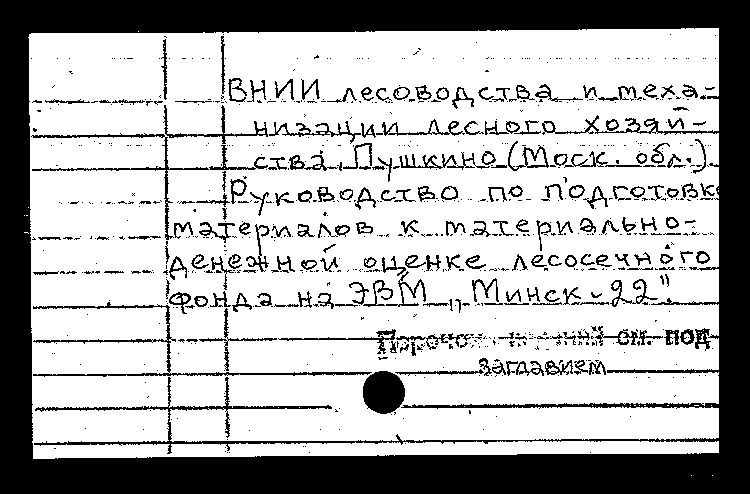 ВНИИ лесоводства и меха-
низации лесного хозяй-
ства, Пушкино (Моск. обл.).
Руководство по подготовке
материалов к материально-
денежной оценке лесосечного
фонда на ЭВМ „Минск-22".
см. под
заглавием